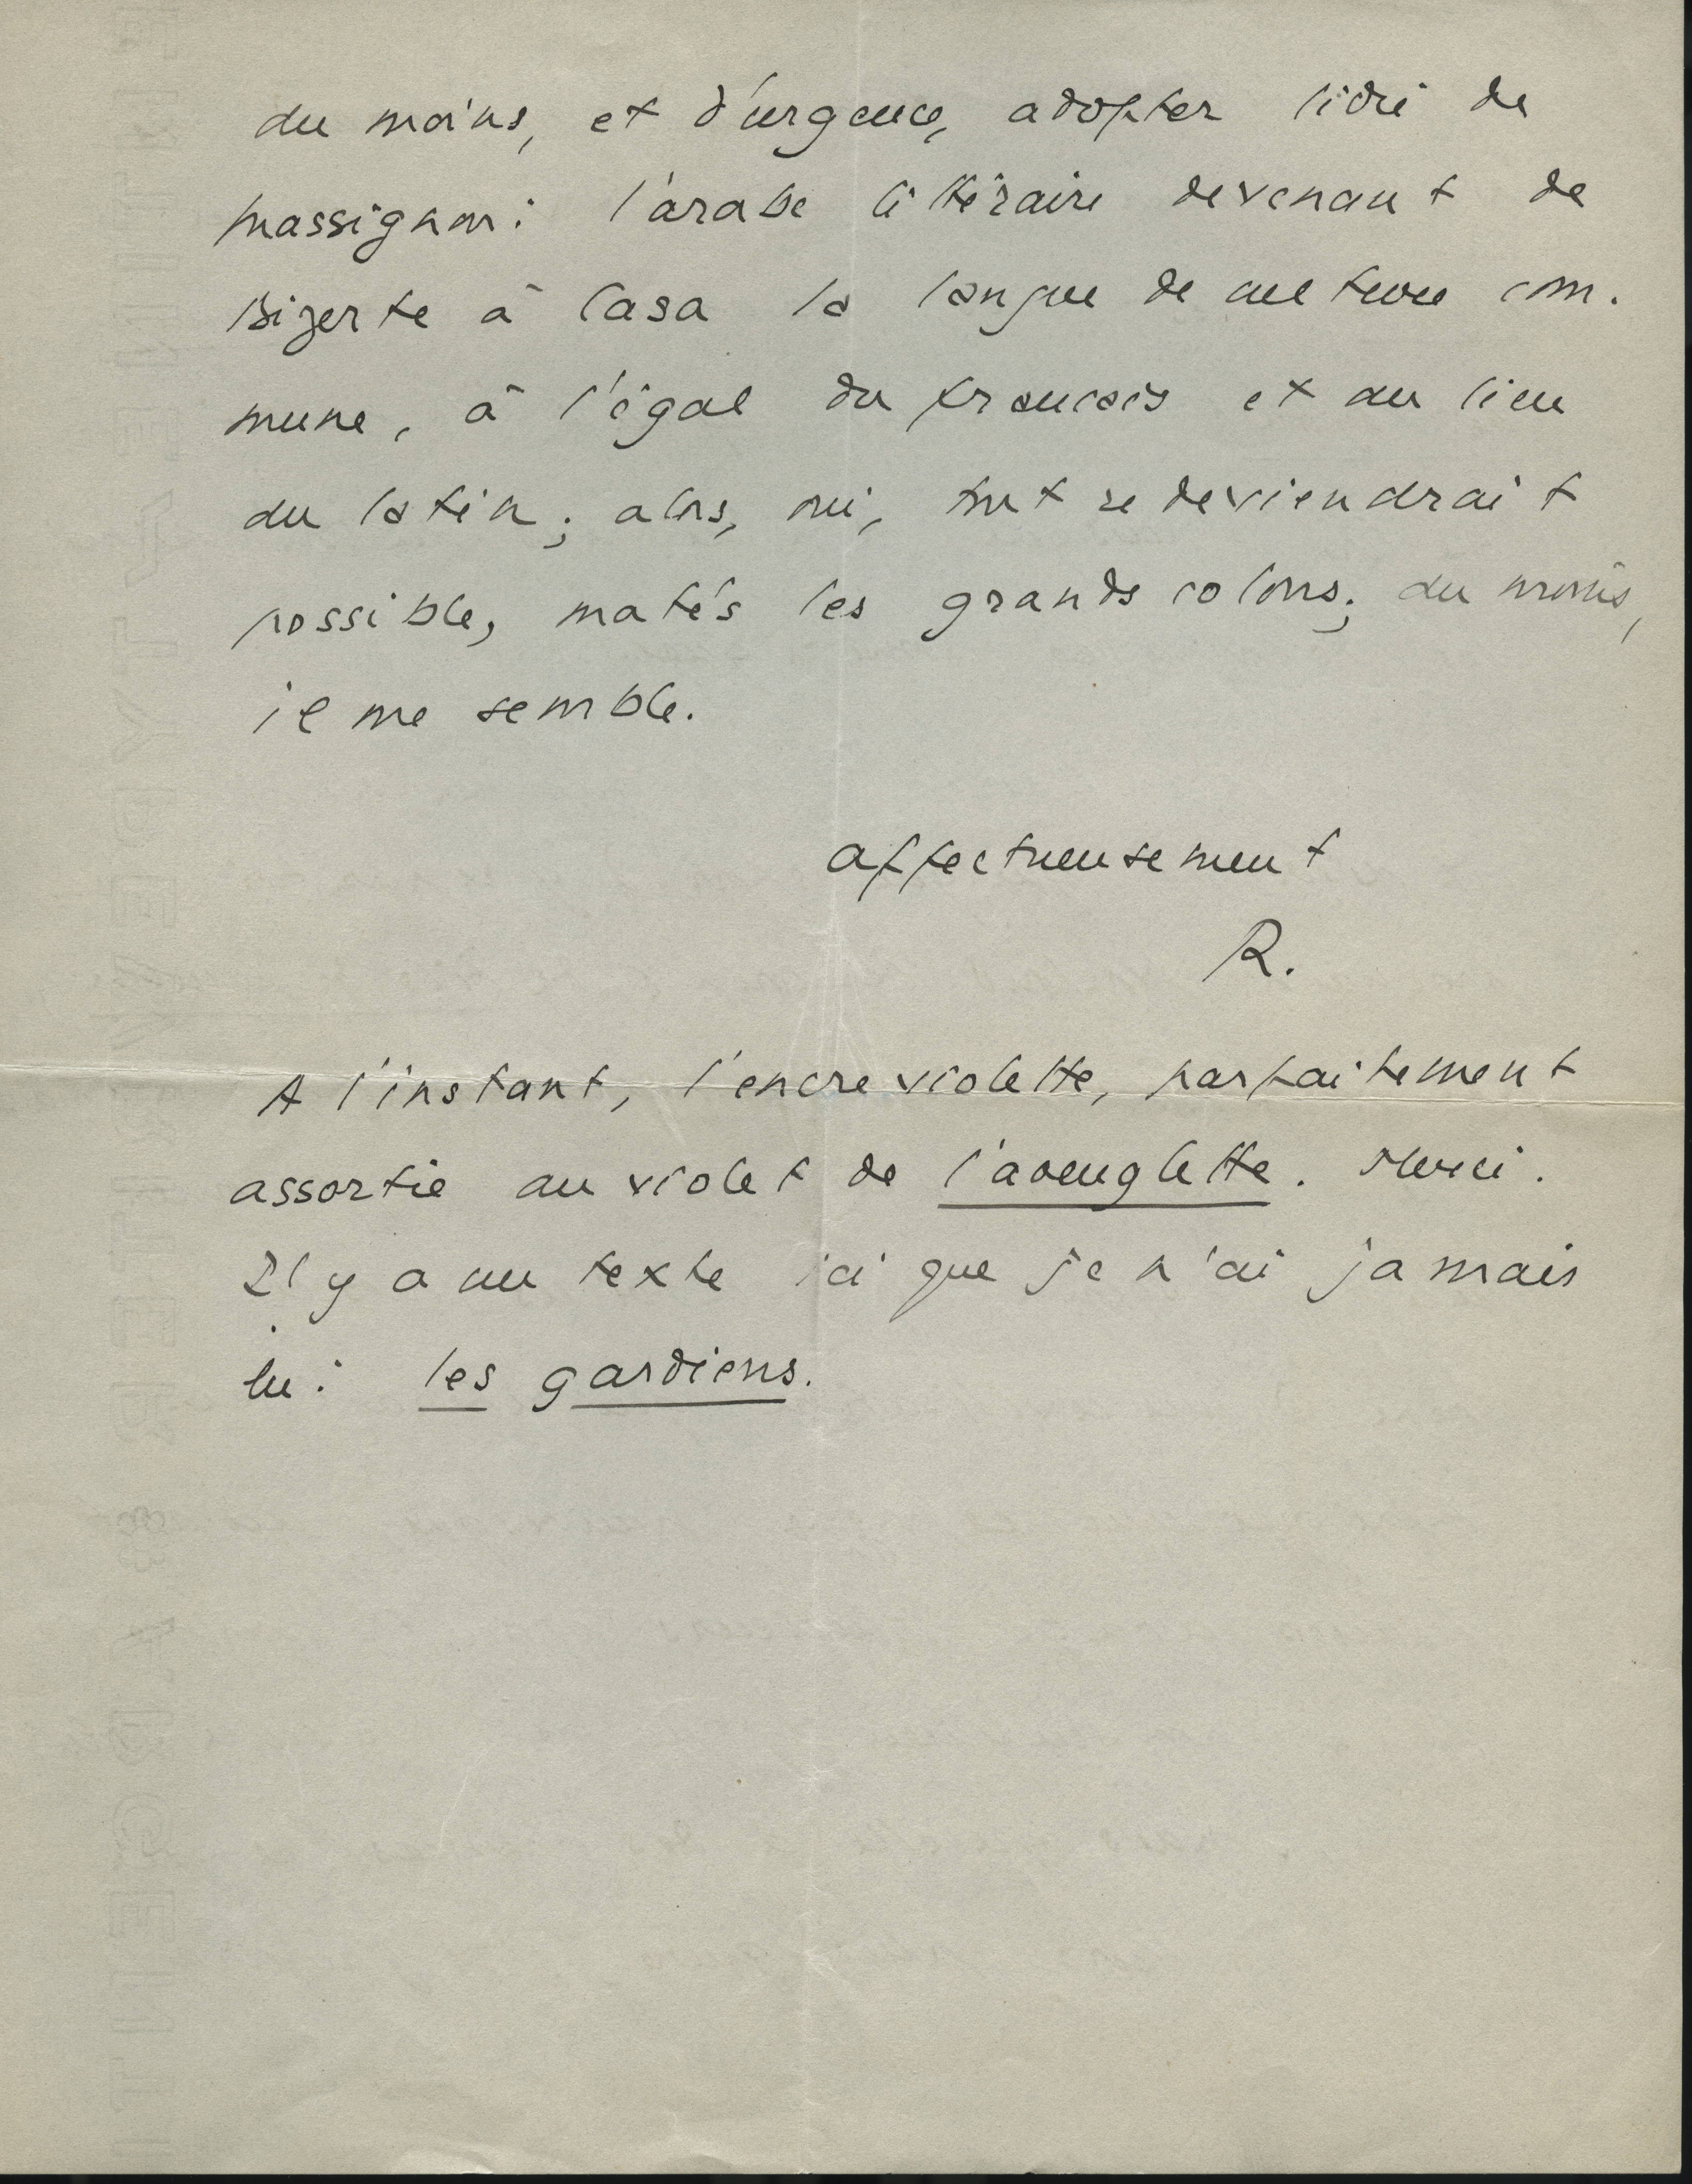 du moins, et d'urgence, adopter l'idée de
Massignon : l'arabe littéraire devenant de
Bizerte à Casa la langue de culture com-
mune, à l'égal du français et au lieu
du latin ; alors, oui, tout redeviendrait
possible, matés les grands colons ; du moins,
il me semble.
affectueusement
R.
A l'instant, l'encre violette, parfaitement
assortie au violet de l'aveuglette. Merci.
Il y a un texte ici que je n'ai jamais
lu : les gardiens.